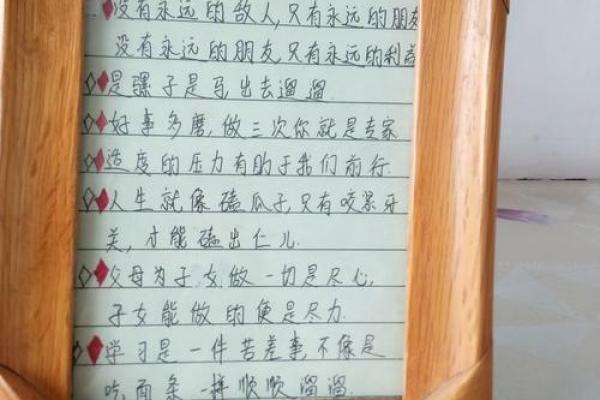 没有永远的敌人,只有永远的朋友
没有永远的朋友,只有永远的利益
是骡子是马,出去遛遛
好事多磨,做三次你就是专家
适度的压力有助于我们前行.
人生就像磕瓜子,只有咬紧牙
关,才能磕出仁儿.
父母为子女做一切是尽心,
子女能做的便是尽力.
学习是一件苦差事,不像是
吃面条一样顺顺溜溜.